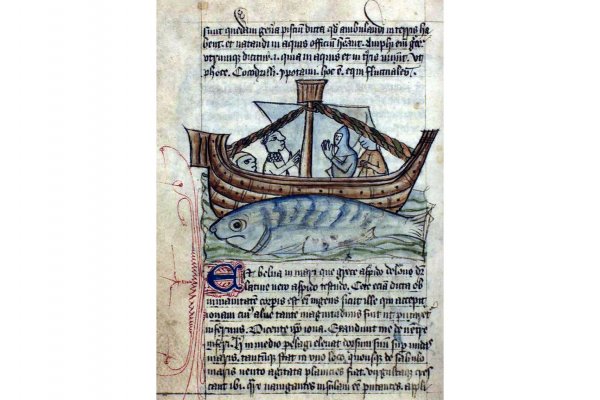 sunt quedam gena pisciū dicta qd ambulandi in terris ha
bent. et natandi in aquis officiū heant. Amphi em gre
utrumque dicitur .i. quia in aquis et in tris uiuūt. Vt
phoce. Cocodrilli. ypotami. hoc ē. equi fluctuales.
Est belua in mari que grece aspido delone dr
latine vero aspido testudo. Cete etiā dicta ob
inmanitatem corpis est eni ingens sicut ille qui accepit
ionam cuius alus tante magnitudinis fuit ut putaret
infernus. Dicente ipo iona. Exaudiuit me de ventre
inferi. in medio pelagi eleuat dorsum suū sup undas
maris. tantūque stat in uno loco. quousque de sabulo
maris vento agitata planicies fiat. virgultaque cres
cant ibi. navigantes insulam eē putantes. appli